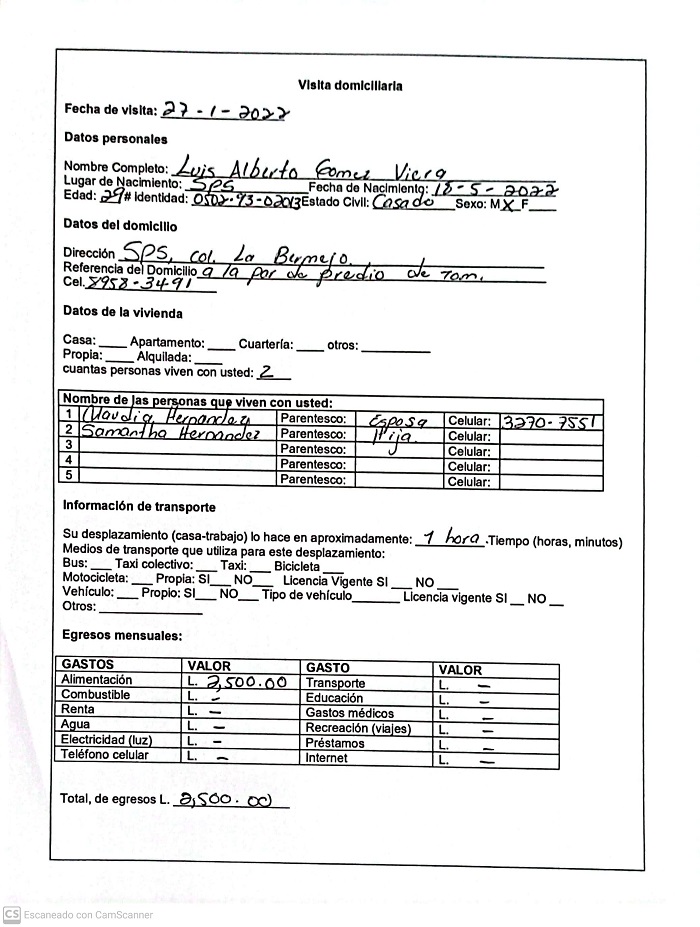 Visita domiciliaria
Fecha de visita: 27-1-2022
Datos personales
Nombre Completo: Luis Alberto Gomez Viera
Lugar de Nacimiento: SPS Fecha de Nacimiento: 18-5-2022
Edad: 29 # Identidad: 0502-93-02013 Estado Civil: Casado Sexo: M X F___
Datos del domicilio
Dirección SPS, col. La Bermejo.
Referencia del Domicilio a la par de predio de Tom.
Cel. 8958-3491
Datos de la vivienda
Casa: ____ Apartamento: ____ Cuartería: ____ otros: __________
Propia: ____ Alquilada: ____
cuantas personas viven con usted: 2
Nombre de las personas que viven con usted:
1 Claudia Hernandez Parentesco: Esposa Celular: 3270-7551
2 Samantha Hernandez Parentesco: Hija Celular:
3 Parentesco: Celular:
4 Parentesco: Celular:
5 Parentesco: Celular:
Información de transporte
Su desplazamiento (casa-trabajo) lo hace en aproximadamente: 1 hora .Tiempo (horas, minutos)
Medios de transporte que utiliza para este desplazamiento:
Bus: ___ Taxi colectivo: ___ Taxi: ___ Bicicleta ___
Motocicleta: ___ Propia: SI___ NO___ Licencia Vigente SI ___ NO ___
Vehículo: ___ Propio: SI___ NO___ Tipo de vehículo_______ Licencia vigente SI __ NO __
Otros: _______________
Egresos mensuales:
GASTOS VALOR GASTO VALOR
Alimentación L. 2,500.00 Transporte L. –
Combustible L. – Educación L. –
Renta L. – Gastos médicos L. –
Agua L. – Recreación (viajes) L. –
Electricidad (luz) L. – Préstamos L. –
Teléfono celular L. – Internet L. –
Total, de egresos L. 2,500.00
CS Escaneado con CamScanner